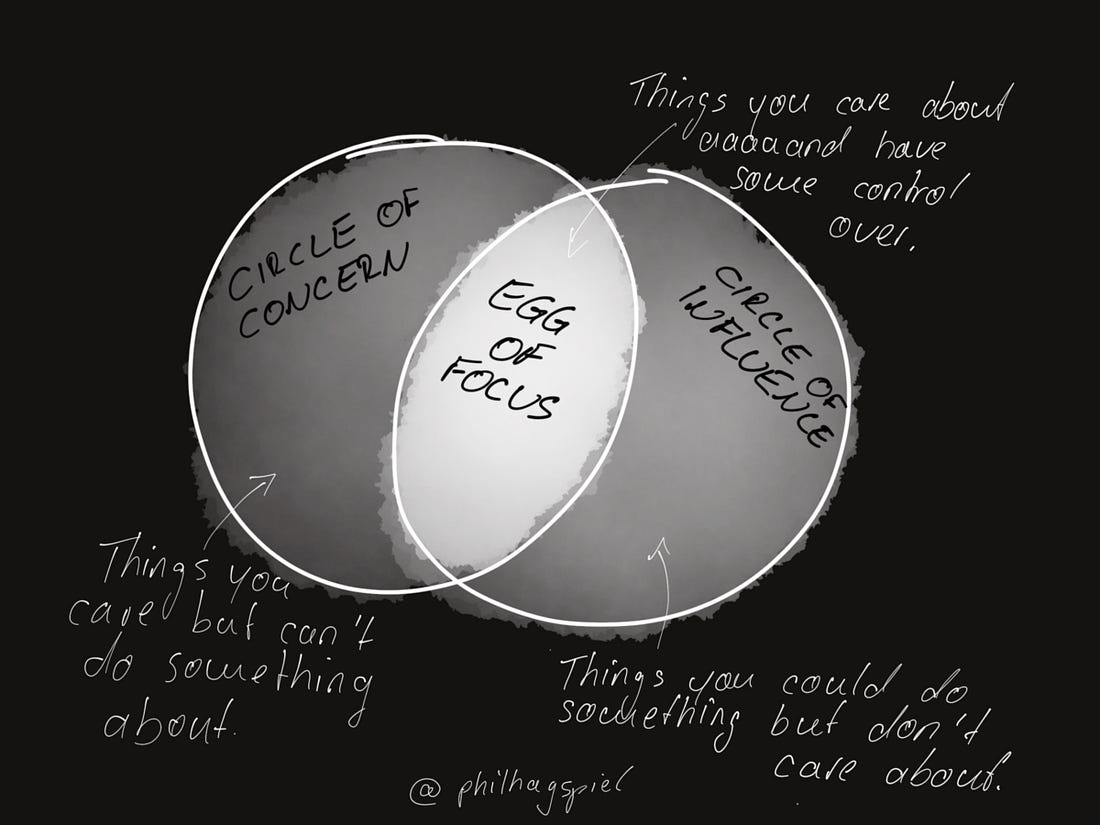 Things you care about
aaaaand have
some control
over.
CIRCLE OF
CONCERN
EGG
OF
FOCUS
CIRCLE OF
INFLUENCE
Things you
care but can't
do something
about.
Things you could do
something but don't
care about.
@philhagspiel